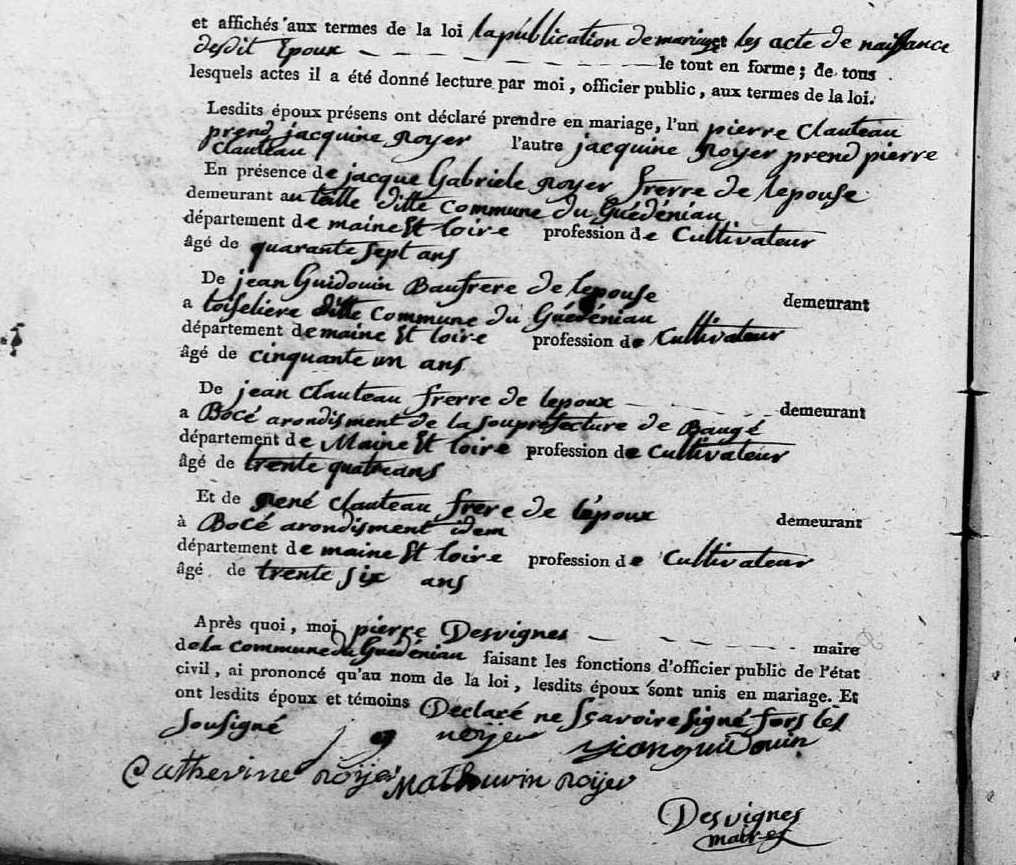 et affichés aux termes de la loi la publication de mariage et les acte de naissance
desdit Epoux le tout en forme ; de tous
lesquels actes il a été donné lecture par moi, officier public, aux termes de la loi.
Lesdits époux présens ont déclaré prendre en mariage, l'un pierre Clauteau
prend jacquine Royer l'autre jacquine Royer prend pierre
Clauteau
En présence de jacque Gabriele Royer frerre de lepouse
demeurant au teille ditte Commune du Guédéniau
département de maine Et loire profession de Cultivateur
âgé de quarante sept ans
De jean Guidouin Baufrere de lepouse demeurant
a toiseliere ditte Commune du Guédéniau
département de maine Et loire profession de Cultivateur
âgé de cinquante un ans
De jean Clauteau frerre de lepoux demeurant
a Bocé arondisment de la souprefecture de Baugé
département de Maine Et loire profession de Cultivateur
âgé de trente quatre ans
Et de René Clauteau frere de lépoux demeurant
à Bocé arondisment idem
département de maine Et loire profession de Cultivateur
âgé de trente six ans
Après quoi, moi pierre Desvignes maire
de la Commune du Guédéniau faisant les fonctions d'officier public de l'état
civil, ai prononcé qu'au nom de la loi, lesdits époux sont unis en mariage. Et
ont lesdits époux et témoins Declaré ne Sçavoire signé fors les
sousigné j g royer jean guidouin
Catherine Royer Mathurin Royer
Desvignes
maire